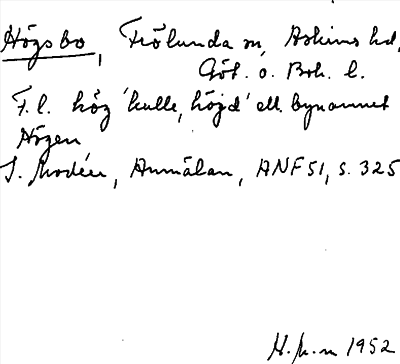 Högsbo, Frölunda sn, Askims hd,
Göt. o. Boh. l.
F.l. hög 'kulle, höjd' ell. bynamnet
Högen
I. Modéer, Anmälan, ANF 51, s. 325
H. 1952